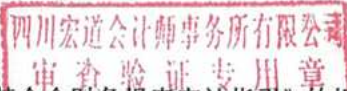 四川宏道会计师事务所有限公司
审查验证专用章